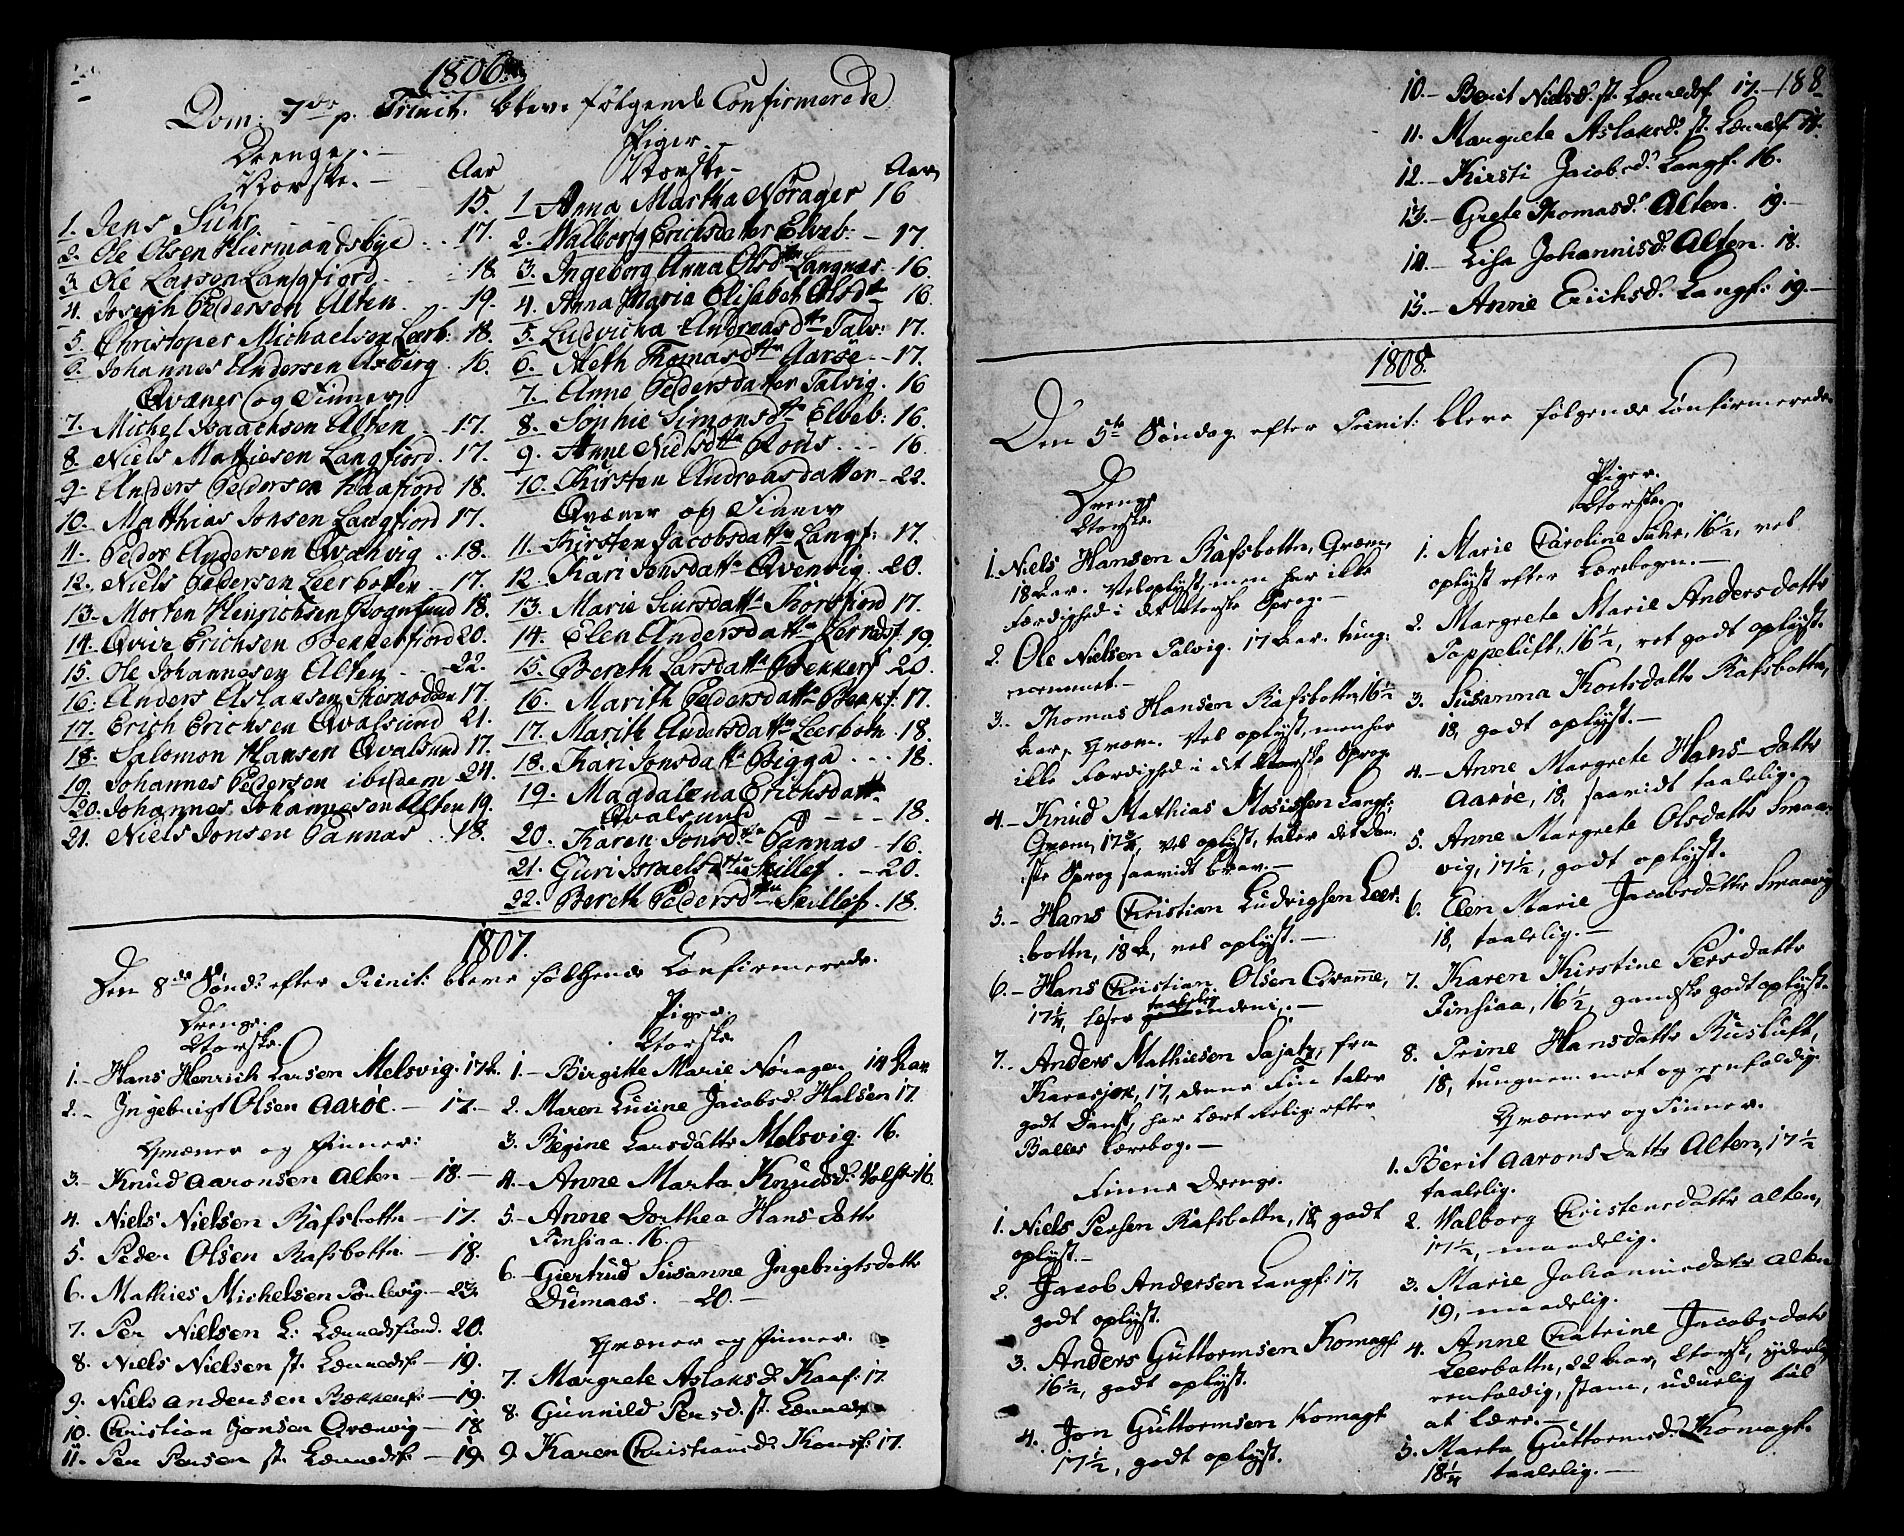 1806
Dom: 7de p. Trinit. bleve følgende Confirmerede
Drenge.
Norske. Aar
1. Jens Suhr 15.
2. Ole Olsen Hiermandsbye 17.
3. Ole Larsen Langfiord 18.
4. Joseph Pedersen Alten 19.
5. Christopher Michaelsen Lerb: 18.
6. Johannes Andersen Asberg 16.
Qvæner og Finner
7. Michel Isaachsen Alten 17.
8. Niels Mathiesen Langfiord 17.
9. Anders Pedersen Kaafiord 18.
10. Matthias Jonsen Langfiord 17.
11. Peder Andersen Qvænvig 18.
12. Niels Pedersen Leerbotten 17.
13. Morten Henrichsen Rognsund 18.
14. Qvive Erichsen Bekkerfiord 20.
15. Ole Johannesen Alten 22.
16. Anders Aslaksen Stiernodden 17.
17. Erich Erichsen Qvalsund 21.
18. Salomon Hansen Qvalsund 17.
19. Johannes Pedersen ibidem 24.
20. Johannes Johannesen Alten 19.
21. Niels Jonsen Pannas 18.
Piger.
Norske Aar
1. Anna Martha Norager 16
2. Walborg Erichsdatter Elveb: 17.
3. Ingeborg Anna Olsdttr Langnæs 16.
4. Anna Maria Elisabet Olsdtr 16.
5. Ludvicha Andreasdttr Talv: 17.
6. Meth Thomasdttr Aarøe 17.
7. Anne Pedersdatter Talvig 16
8. Sophie Simonsdtr Elveb: 16.
9. Anne Nielsdttr Roûs 16.
10. Kirsten Andreasdatter 22.
Qvæner og Finner
11. Kirsten Jacobsdattr Langf: 17.
12. Kari Jonsdattr Qvenvig 20.
13. Marie Siursdattr Korsfiord 17.
14. Elen Andersdattr Lerresf. 19.
15. Bereth Larsdattr Bekkerf 20.
16. Marith Pedersdattr Bekkf. 17.
17. Marith Andersdattr Leerbotn 18.
18. Kari Jonsdattr Bigga 18.
19. Magdalena Erichsdattr
Qvalsund 18.
20. Karen Jonsdtr Pannas 16.
21. Guri Israelsdttr Skillef. 20.
22. Bereth Pedersdttr Skillef. 18.
1807.
Den 8de Sønd: efter Trinit: bleve følgende Confirmerede.
Drenge.
Norske.
1. Hans Henrich Larsen Melsvig. 17.
2. Ingebrigt Olsen Aarøe. 17.
Qvæner og Finner:
3. Knud Aaronsen Alten 18.
4. Niels Nielsen Rafsbottn 17.
5. Peder Olsen Rafsbottn 18.
6. Mathies Michelsen 23.
7. Per Nielsen L: Lerredsfiord. 20.
8. Niels Nielsen st. Lerredsf. 19.
9. Niels Andersen Bekkerf. 19.
10. Christian Jonsen Qvænvig 18
11. Per Persen st. Lerredsf. 19.
Piger.
Norske.
1. Birgitte Marie Norager 14 Aar
2. Maren Lucine Jacobsd. Halsen 17.
3. Regine Larsdattr Melsvig. 16.
4. Anne Marta Knudsd. 16.
5. Anne Dorthea Hansdattr
Finsiaa. 16.
6. Giertrud Susanne Ingebrigtsdattr
Dumaas. 20.
Qvæner og Finner.
7. Margrete Aslaksd. Kaaf: 17
8. Gunnild Persd. st. Lerredsf
9. Karen Christiansd. Korsf: 17.
188
10. Berit Nielsd. st. Lerredsf. 17.
11. Margrete Aslaksd. st. Lerredsf. 17.
12. Kirsti Jacobsd. Langf: 16.
13. Grete Thomasd. Alten. 19.
14. Lisa Johannisd. Alten. 18.
15. Anne Erichsd. Langf: 19.
1808.
Den 5te Søndag efter Trinit: bleve følgende Confirmerede.
Drenge
Norske.
1. Niels Hansen Rafsbottn, Qvæn,
18 Aar. Vel oplyst, men har ikke
Færdighed i det Norske Sprog.
2. Ole Nielsen Talvig. 17 Aar. tung:
nemmet.
3. Thomas Hansen Rafsbottn, 16 1/2
Aar, Qvæn. Vel oplyst, men har
ikke Færdighed i det Norske Sprog
4. Knud Mathias Mosissen Langf:
Qvæn, 17 3/4, Vel oplyst, taler det Dan:
ske Sprog saavidt brav.
5. Hans Christian Ludvigsen Leer:
bottn, 18 A, vel oplyst.
6. Hans Christian Olsen Qvamme,
17 1/4, læser taalelig indeni.
7. Anders Mathiesen Sajatz, fra
Karasjok, 17, denne Fin taler
godt Dansk, har lært Relig: efter
Balles Lærebog.
Finne Drenge.
1. Niels Persen Rafsbottn, 18, godt
oplyst.
2. Jacob Andersen Langf: 17,
godt oplyst.
3. Anders Guttormsen Komagf
16 1/2, godt oplyst.
4. Jon Guttormsen Komagf
17 1/2, godt oplyst.
Piger.
Norske.
1. Marie Caroline Suhr, 16 1/2, vel
oplyst efter Lærebogen.
2. Margrete Marie Andersdattr
Toppeluft, 16 1/2, ret godt oplyst.
3. Susanna Kortsdattr Rafsbottn,
18, godt oplyst.
4. Anne Margrete Hans-dattr
Aarøe, 18, saavidt taalelig.
5. Anne Margrete Olsdattr Smaa:
vig, 17 1/2, godt oplyst.
6. Elen Marie Jacobsdattr Smaavig
18, taalelig.
7. Karen Kirstine Persdattr
Finsiaa, 16 1/2, gandske godt oplyst.
8. Trine Hansdattr Rusluft,
18, tungnemmet og eenfoldig.
Qvæner og Finner.
1. Berit Aaronsdattr Alten, 17 1/2
taalelig.
2. Walborg Christensdattr Alten,
17 1/2, maadelig.
3. Marie Johannisdatr Alten
19, maadelig.
4. Anne Chatrine Jacobsdatr
Leerbottn, 22 Aar, Norsk, yderlig
eenfoldig, stam, uduelig til
at lære.
5. Marta Guttormsd. Komagf.
18 1/4 taalelig.